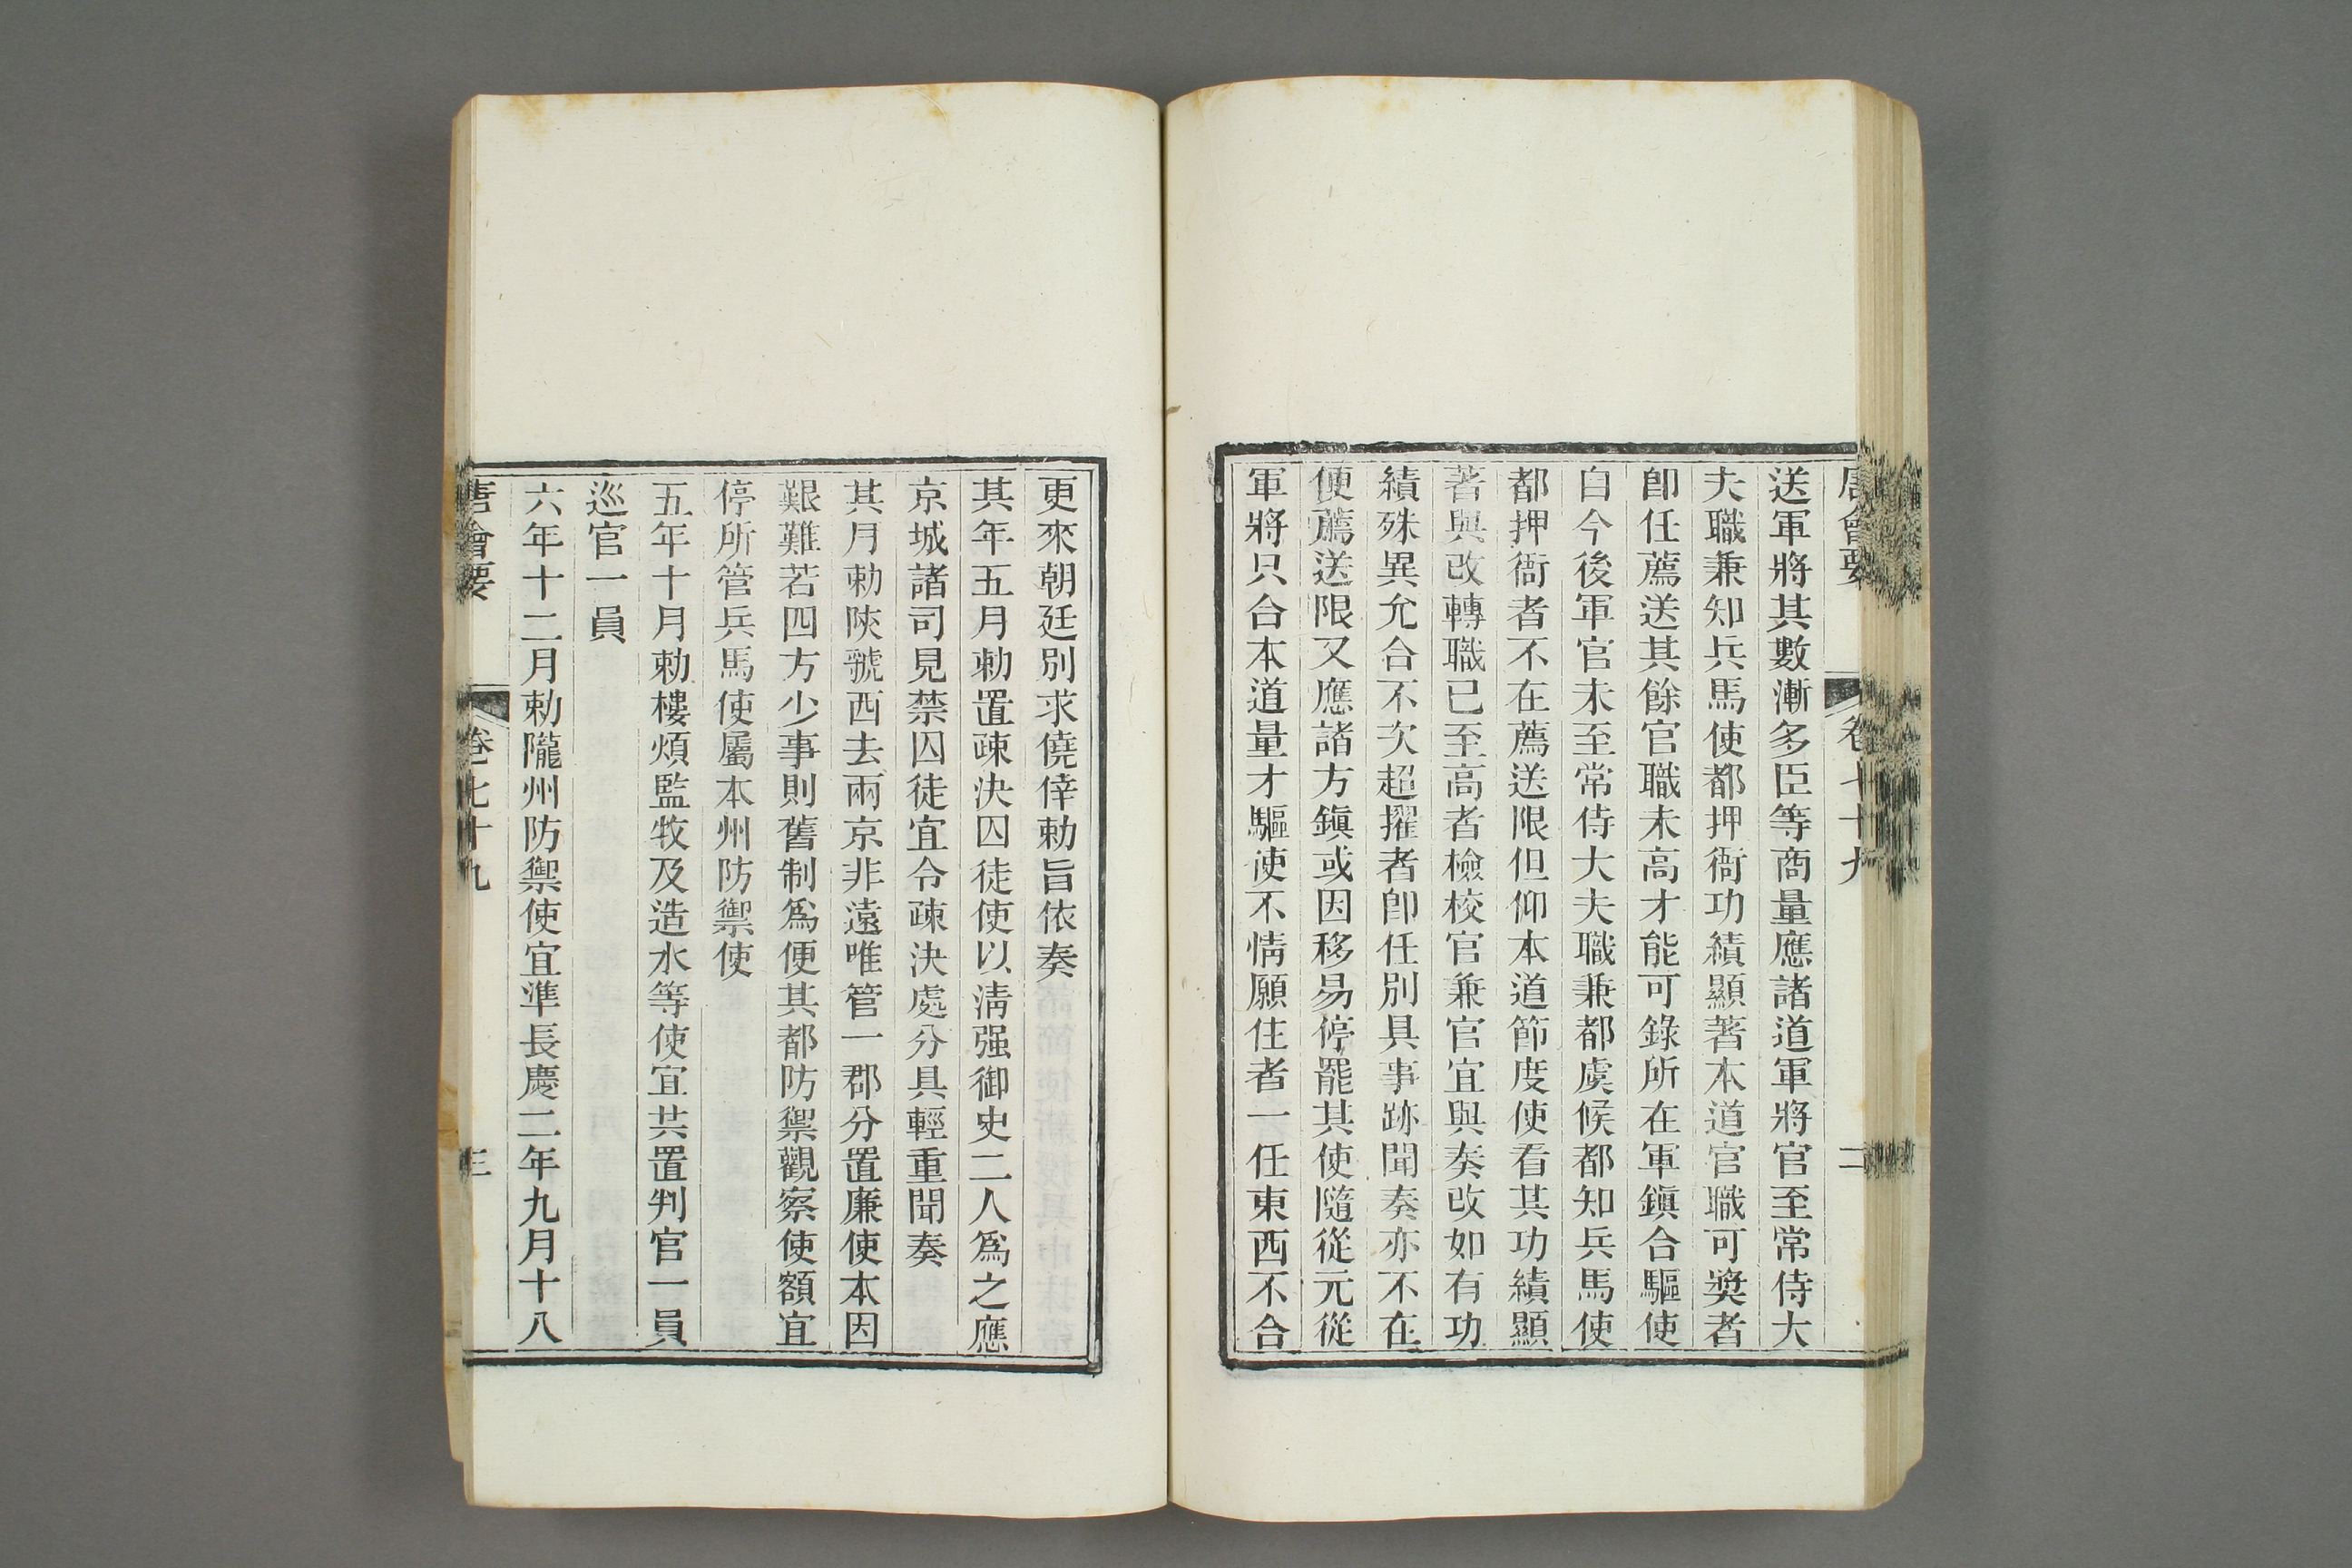 唐會要 卷七十九 二
送軍將其數漸多臣等商量應諸道軍將官至常侍大
夫職兼知兵馬使都押衙功績顯著本道官職可獎者
卽任薦送其餘官職未高才能可錄所在軍鎭合驅使
自今後軍官未至常侍大夫職兼都虞候都知兵馬使
都押衙者不在薦送限但仰本道節度使看其功績顯
著與改轉職已至高者檢校官兼官宜與奏改如有功
績殊異允合不次超擢者卽任別具事跡聞奏亦不在
便薦送限又應諸方鎭或因移易停罷其使隨從元從
軍將只合本道量才驅使不情願住者一任東西不合
更來朝廷別求僥倖勅旨依奏
其年五月勅置疎決囚徒使以淸强御史二人爲之應
京城諸司見禁囚徒宜令疎決處分具輕重聞奏
其月勅陜虢西去兩京非遠唯管一郡分置廉使本因
艱難若四方少事則舊制爲便其都防禦觀察使額宜
停所管兵馬使屬本州防禦使
五年十月勅樓煩監牧及造水等使宜共置判官一員
巡官一員
六年十二月勅隴州防禦使宜準長慶二年九月十八
唐會要 卷七十九 三